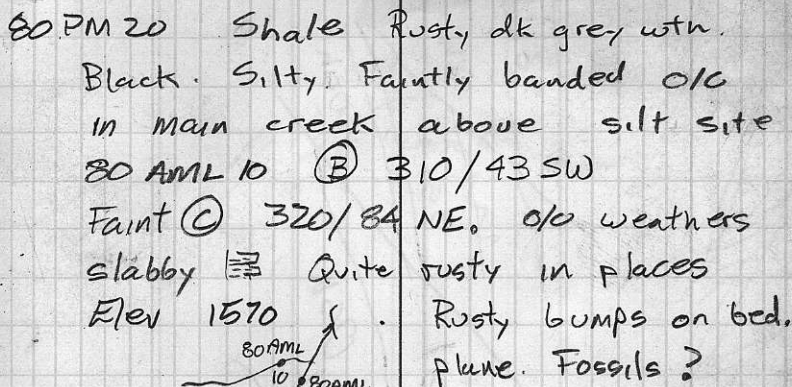 80 PM 20 Shale Rusty dk grey wth.
Black. Silty. Faintly banded o/c
in main creek above silt site
80 AML 10 Ⓑ 310/43 SW
Faint Ⓒ 320/84 NE. o/c weathers
slabby Quite rusty in places
Elev 1570 . Rusty bumps on bed.
plane. Fossils?
80AML
10 80AML